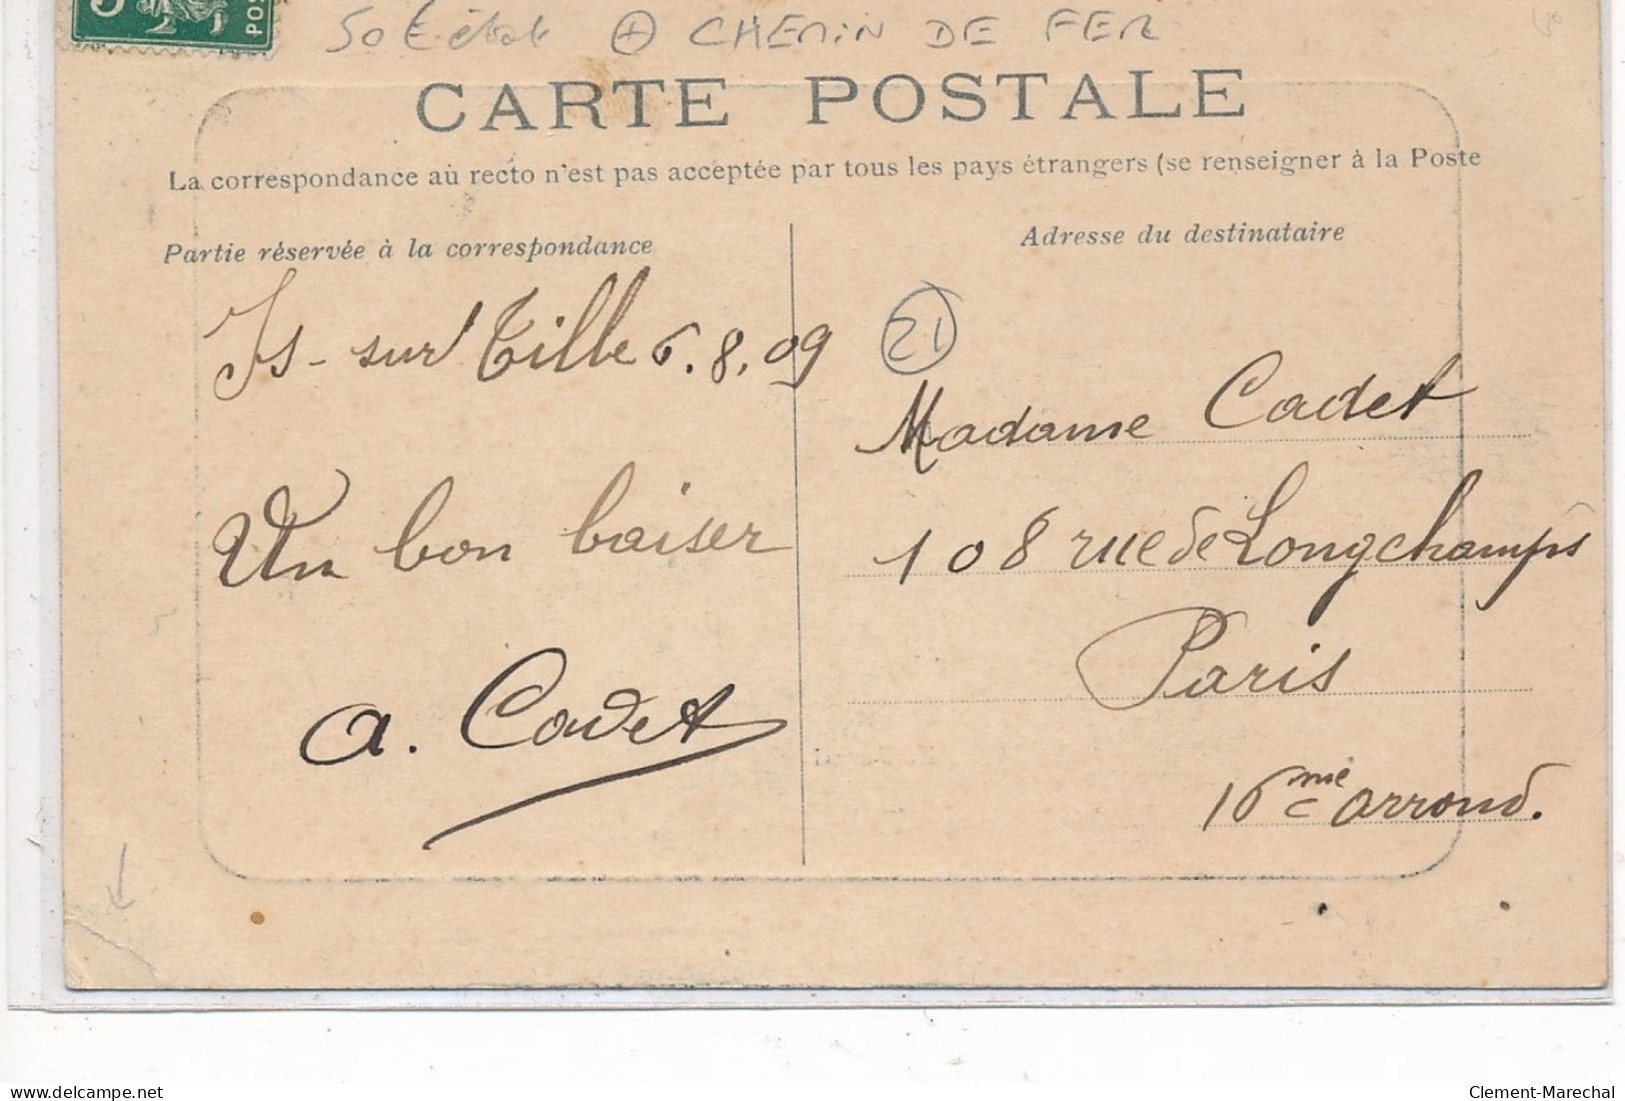 5
POS
CHEMIN DE FER
CARTE POSTALE
La correspondance au recto n'est pas acceptée par tous les pays étrangers (se renseigner à la Poste
Partie réservée à la correspondance
Is-sur Tille 6.8.09
Un bon baiser
A. Cadet
Adresse du destinataire
21
Madame Cadet
108 rue de Longchamps
Paris
16ème arrond.
Clement-Marechal
delcampe.net